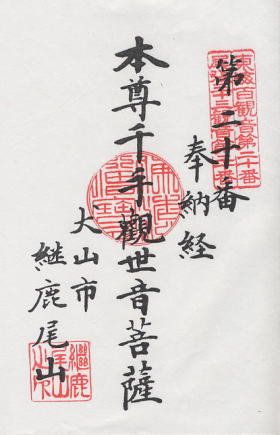 東海百観音第二十番
第二十番
奉納経
本尊千手觀世音菩薩
犬山市
継鹿尾山